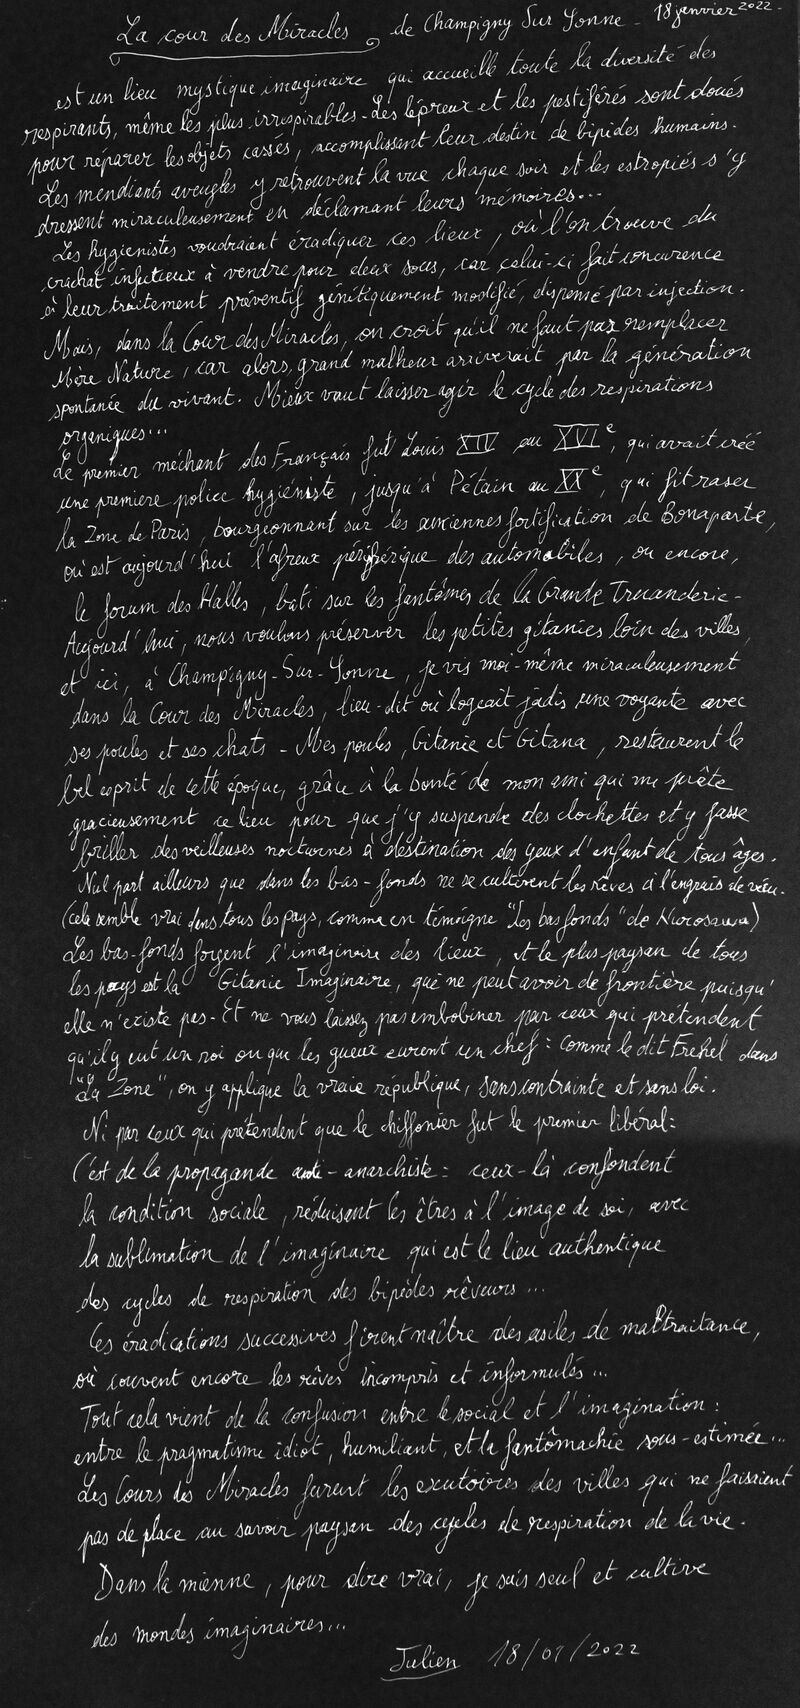 La cour des Miracles de Champigny Sur Yonne - 18 janvier 2022 -
est un lieu mystique imaginaire qui accueille toute la diversité des
respirants, même les plus irrespirables - Les lépreux et les pestiférés sont doués
pour réparer les objets cassés, accomplissant leur destin de bipides humains.
Les mendiants aveugles y retrouvent la vue chaque soir et les estropiés s'y
dressent miraculeusement en déclamant leurs mémoires...
Les hygienistes voudraient éradiquer ces lieux, où l'on trouve du
crachat infectieux à vendre pour deux sous, car celui-ci fait concurence
à leur traitement préventif génétiquement modifié, dispensé par injection.
Mais, dans la Cour des Miracles, on croit qu'il ne faut pas remplacer
Mère Nature, car alors, grand malheur arriverait par la génération
spontanée du vivant. Mieux vaut laisser agir le cycle des respirations
organiques...
Le premier méchant des Français fut Louis XIV au XVIe, qui avait créé
une première police hygiéniste, jusqu'à Pétain au XXe, qui fit raser
la Zone de Paris, bourgeonnant sur les anciennes fortification de Bonaparte,
où est aujourd'hui l'afreux périphérique des automobiles, ou encore,
le forum des Halles, bati sur les fantômes de la Grande Truanderie -
Aujourd'hui, nous voulons préserver les petites gitanies loin des villes,
et ici, à Champigny-Sur-Yonne, je vis moi-même miraculeusement
dans la Cour des Miracles, lieu-dit où logeait jadis une voyante avec
ses poules et ses chats - Mes poules, Gitanie et Gitana, restaurent le
bel esprit de cette époque, grâce à la bonté de mon ami qui me prête
gracieusement ce lieu pour que j'y suspende des clochettes et y fasse
briller des veilleuses nocturnes à destination des yeux d'enfant de tous âges.
Nul part ailleurs que dans les bas-fonds ne se cultivent les rêves à l'engrais de vécu.
(cela semble vrai dans tous les pays, comme en témoigne "Les bas fonds" de Kurosawa)
Les bas-fonds forgent l'imaginaire des lieux, et le plus paysan de tous
les pays est la Gitanie Imaginaire, qui ne peut avoir de frontière puisqu'
elle n'existe pas - Et ne vous laissez pas embobiner par ceux qui prétendent
qu'il y eut un roi ou que les gueux eurent un chef : comme le dit Frehel dans
"La Zone", on y applique la vraie république, sans contrainte et sans loi.
Ni par ceux qui prétendent que le chiffonier fut le premier libéral :
C'est de la propagande anti-anarchiste : ceux-là confondent
la condition sociale, réduisant les êtres à l'image de soi, avec
la sublimation de l'imaginaire qui est le lieu authentique
des cycles de respiration des bipèdes rêveurs...
Ces éradications successives firent naître des asiles de maltraitance,
où couvent encore les rêves incompris et informulés...
Tout cela vient de la confusion entre le social et l'imagination :
entre le pragmatisme idiot, humiliant, et la fantômachie sous-estimée...
Les Cours des Miracles furent les exutoires des villes qui ne faisaient
pas de place au savoir paysan des cycles de respiration de la vie.
Dans la mienne, pour dire vrai, je suis seul et cultive
des mondes imaginaires...
Julien 18/01/2022